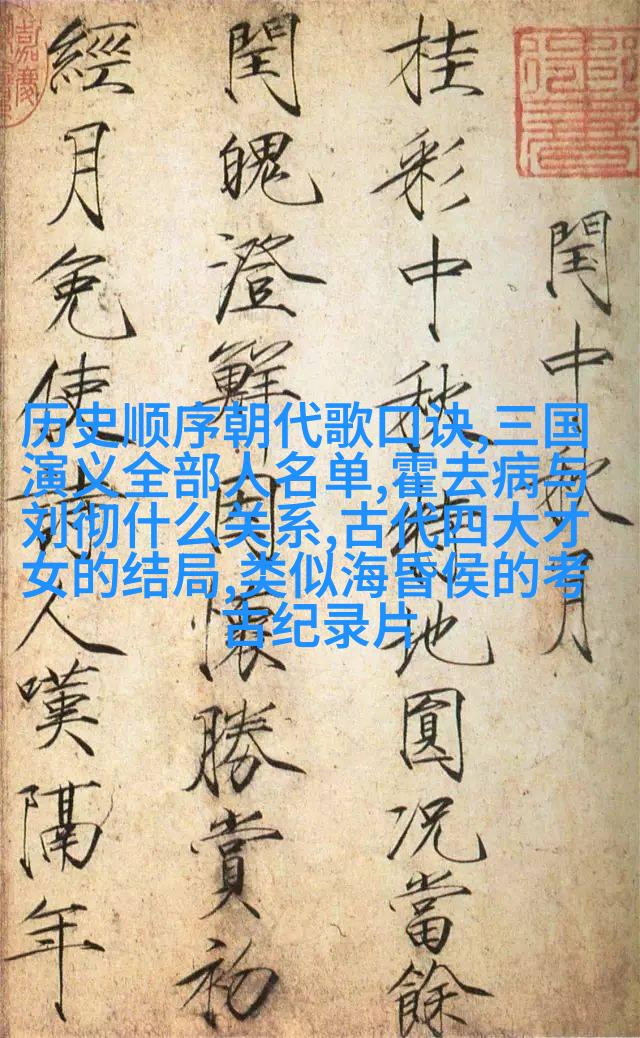 閏中秋月
桂彩中秋特地圓况當餘
閏魄澄鮮因懷勝賞初
經月免使詩人嘆隔年
历史顺序朝代歌口诀,三国
演义全部人名单,霍去病与
刘彻什么关系,古代四大才
女的结局,类似海昏侯的考
古纪录片